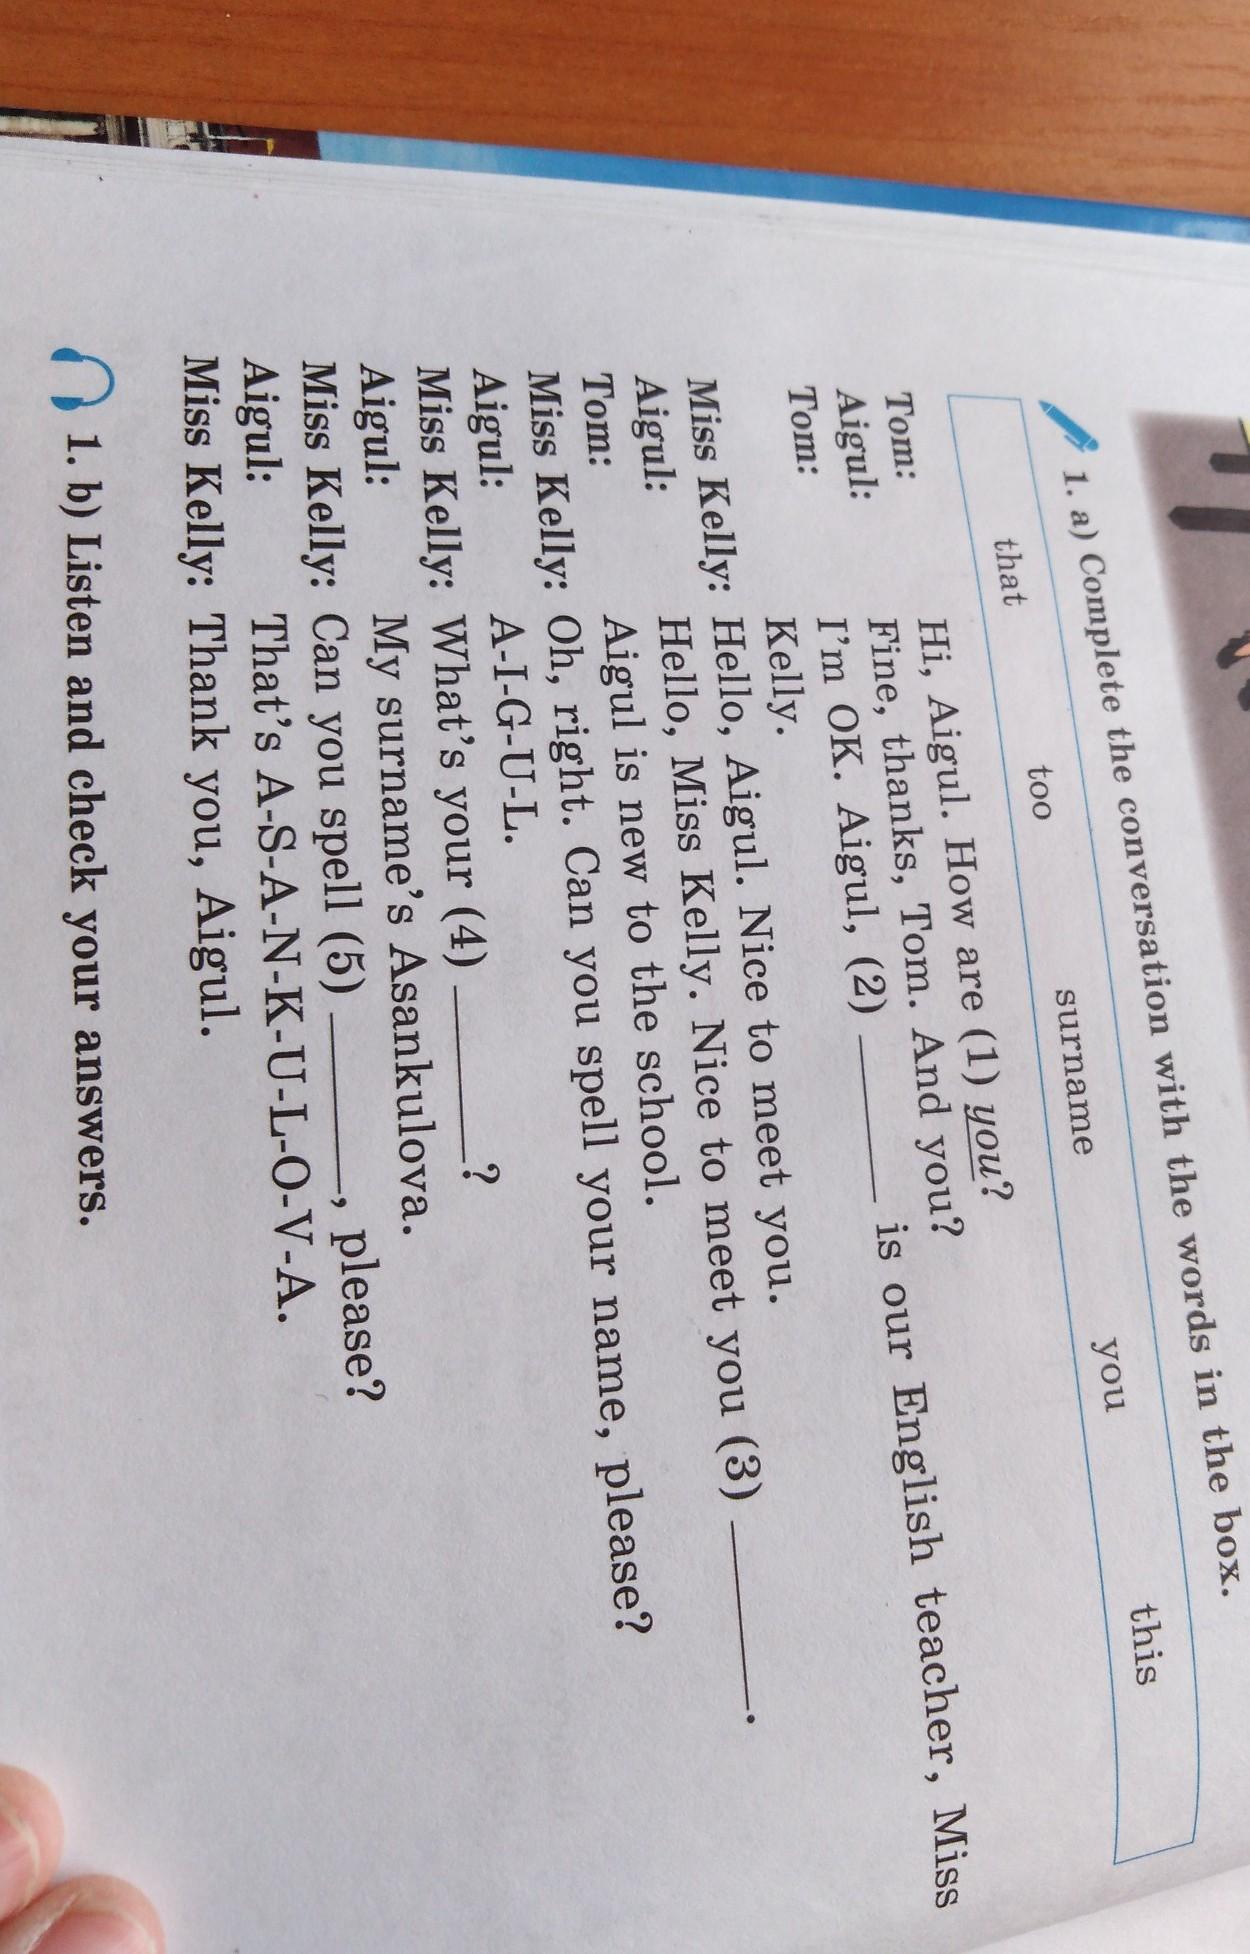 1. a) Complete the conversation with the words in the box.
that too surname you this
Tom: Hi, Aigul. How are (1) you?
Aigul: Fine, thanks, Tom. And you?
Tom: I'm OK. Aigul, (2) ______ is our English teacher, Miss
Kelly.
Miss Kelly: Hello, Aigul. Nice to meet you.
Aigul: Hello, Miss Kelly. Nice to meet you (3) ______.
Tom: Aigul is new to the school.
Miss Kelly: Oh, right. Can you spell your name, please?
Aigul: A-I-G-U-L.
Miss Kelly: What's your (4) ______?
Aigul: My surname's Asankulova.
Miss Kelly: Can you spell (5) ______, please?
Aigul: That's A-S-A-N-K-U-L-O-V-A.
Miss Kelly: Thank you, Aigul.
1. b) Listen and check your answers.